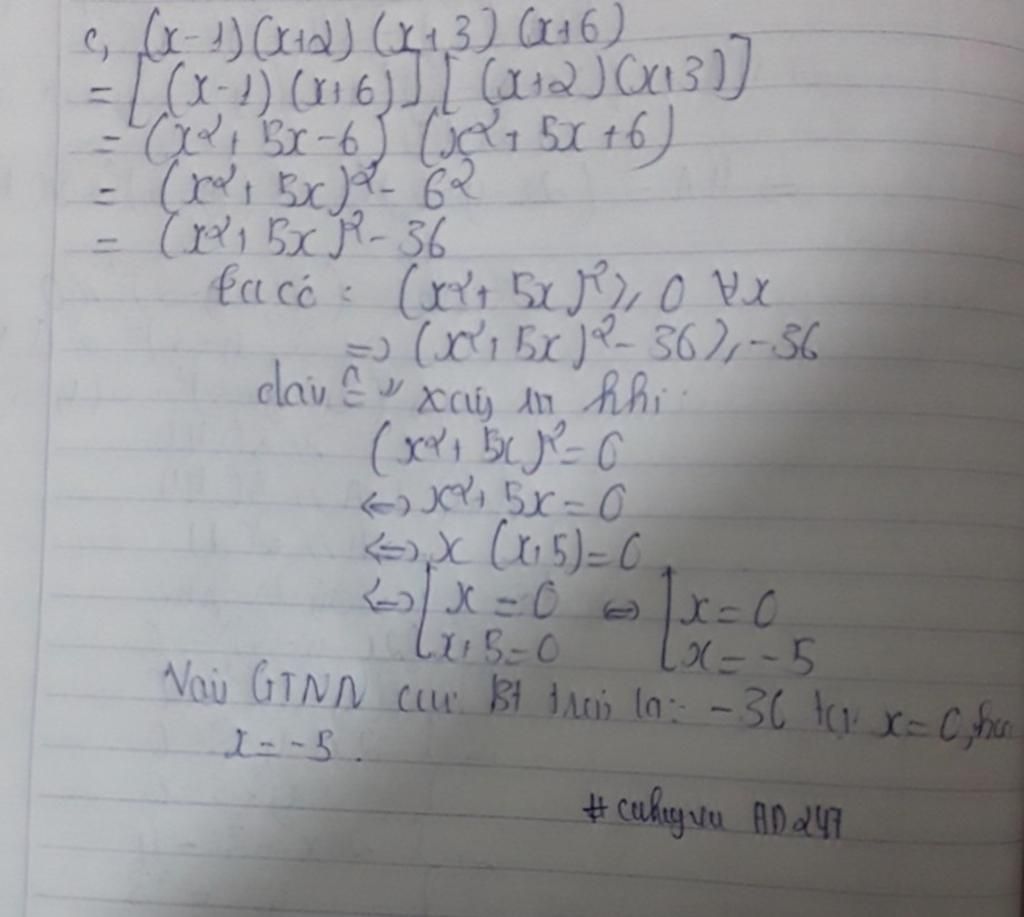 c, (x-1)(x+2)(x+3)(x+6)
= [(x-1)(x+6)][(x+2)(x+3)]
= (x²+5x-6)(x²+5x+6)
= (x²+5x)²-6²
= (x²+5x)²-36
ta có: (x²+5x)²≥0 ∀x
=> (x²+5x)²-36≥-36
dấu "=" xảy ra khi
(x²+5x)²=0
<=> x²+5x=0
<=> x(x+5)=0
<=> [x=0 <=> [x=0
x+5=0 x=-5
Vậy GTNN của Bt trên là: -36 tại x=0, hoặc
x=-5.
# AD247